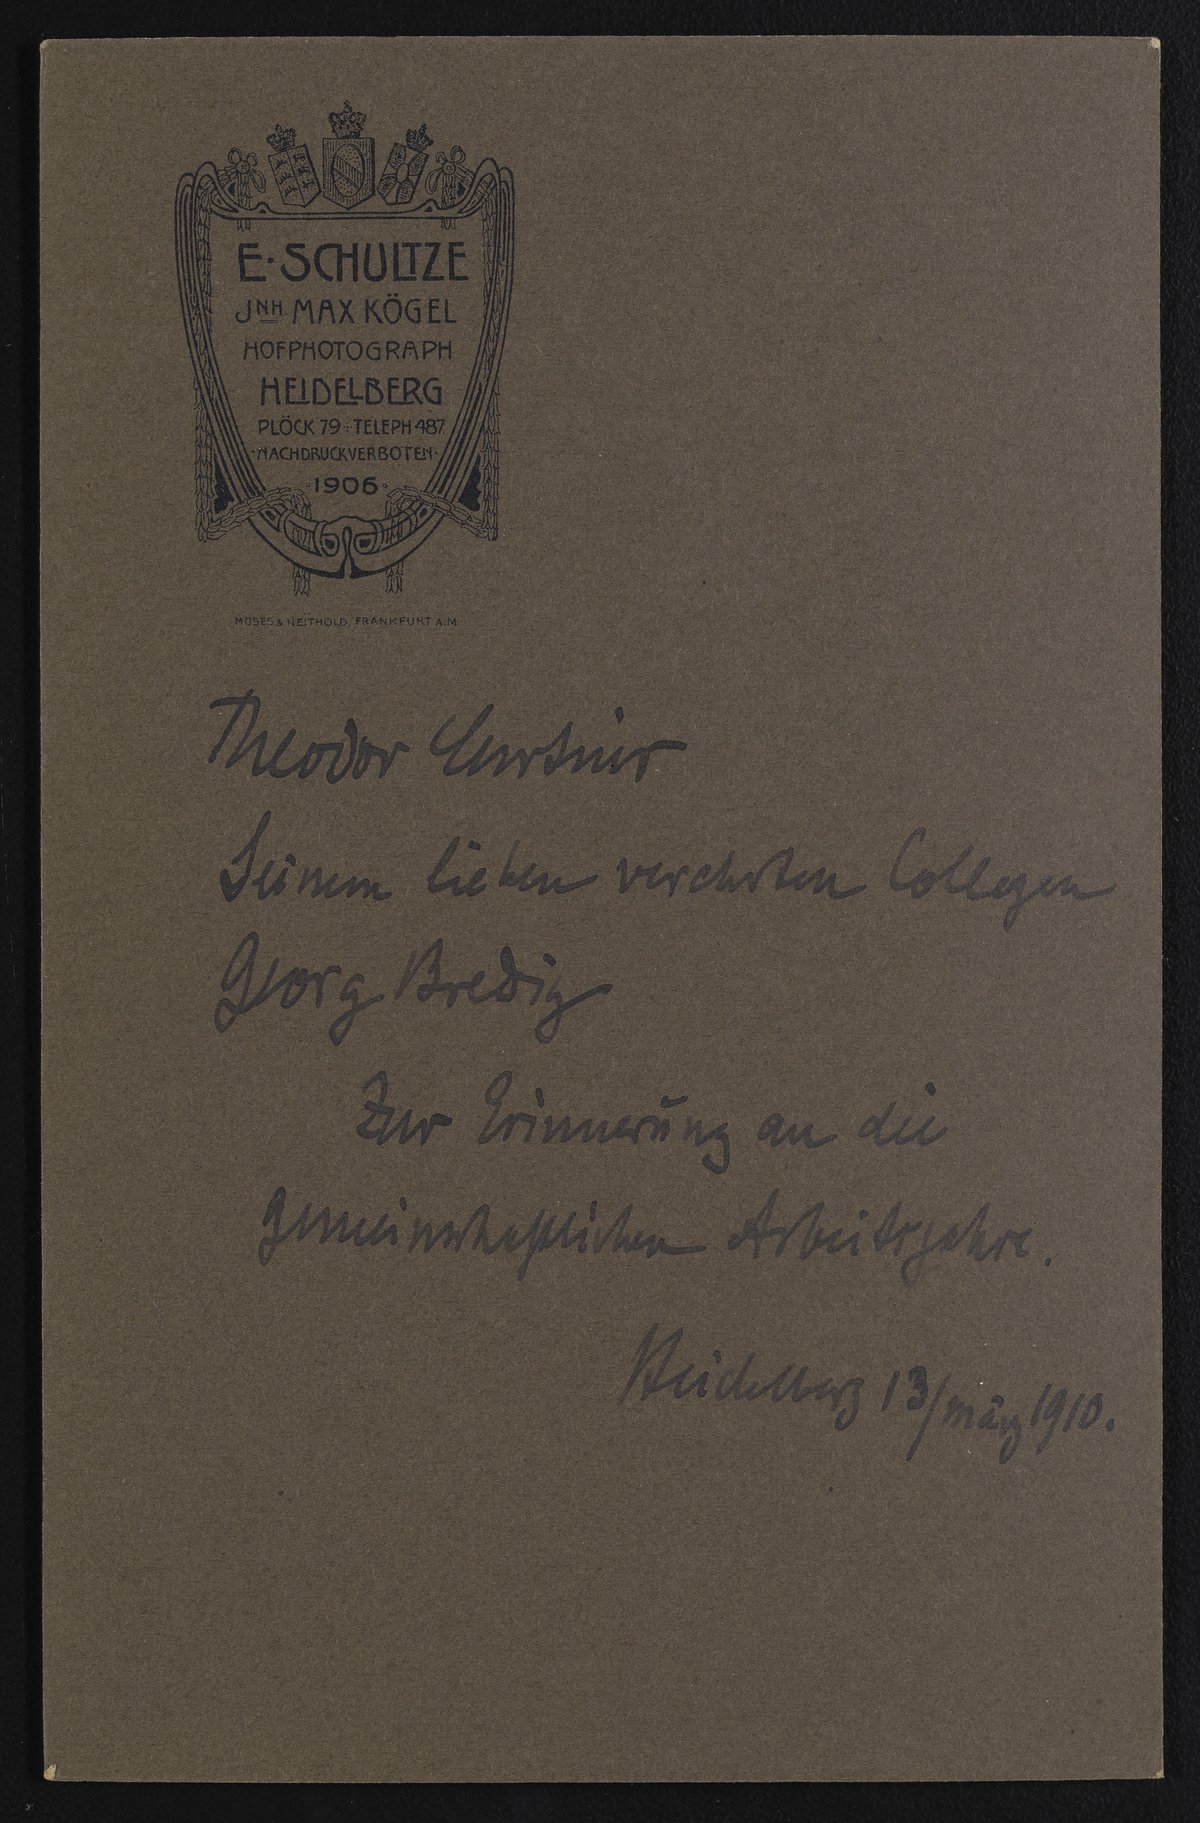 E. SCHULTZE
JNH. MAX KÖGEL
HOFPHOTOGRAPH
HEIDELBERG
PLÖCK 79 : TELEPH 487
·NACHDRUCK VERBOTEN·
·1906·
MOSES & NEITHOLD, FRANKFURT A.M.
Theodor Curtius
Seinem lieben verehrten Collegen
Georg Bredig
Zur Erinnerung an die
gemeinschaftlichen Arbeitsjahre.
Heidelberg 13/März 1910.